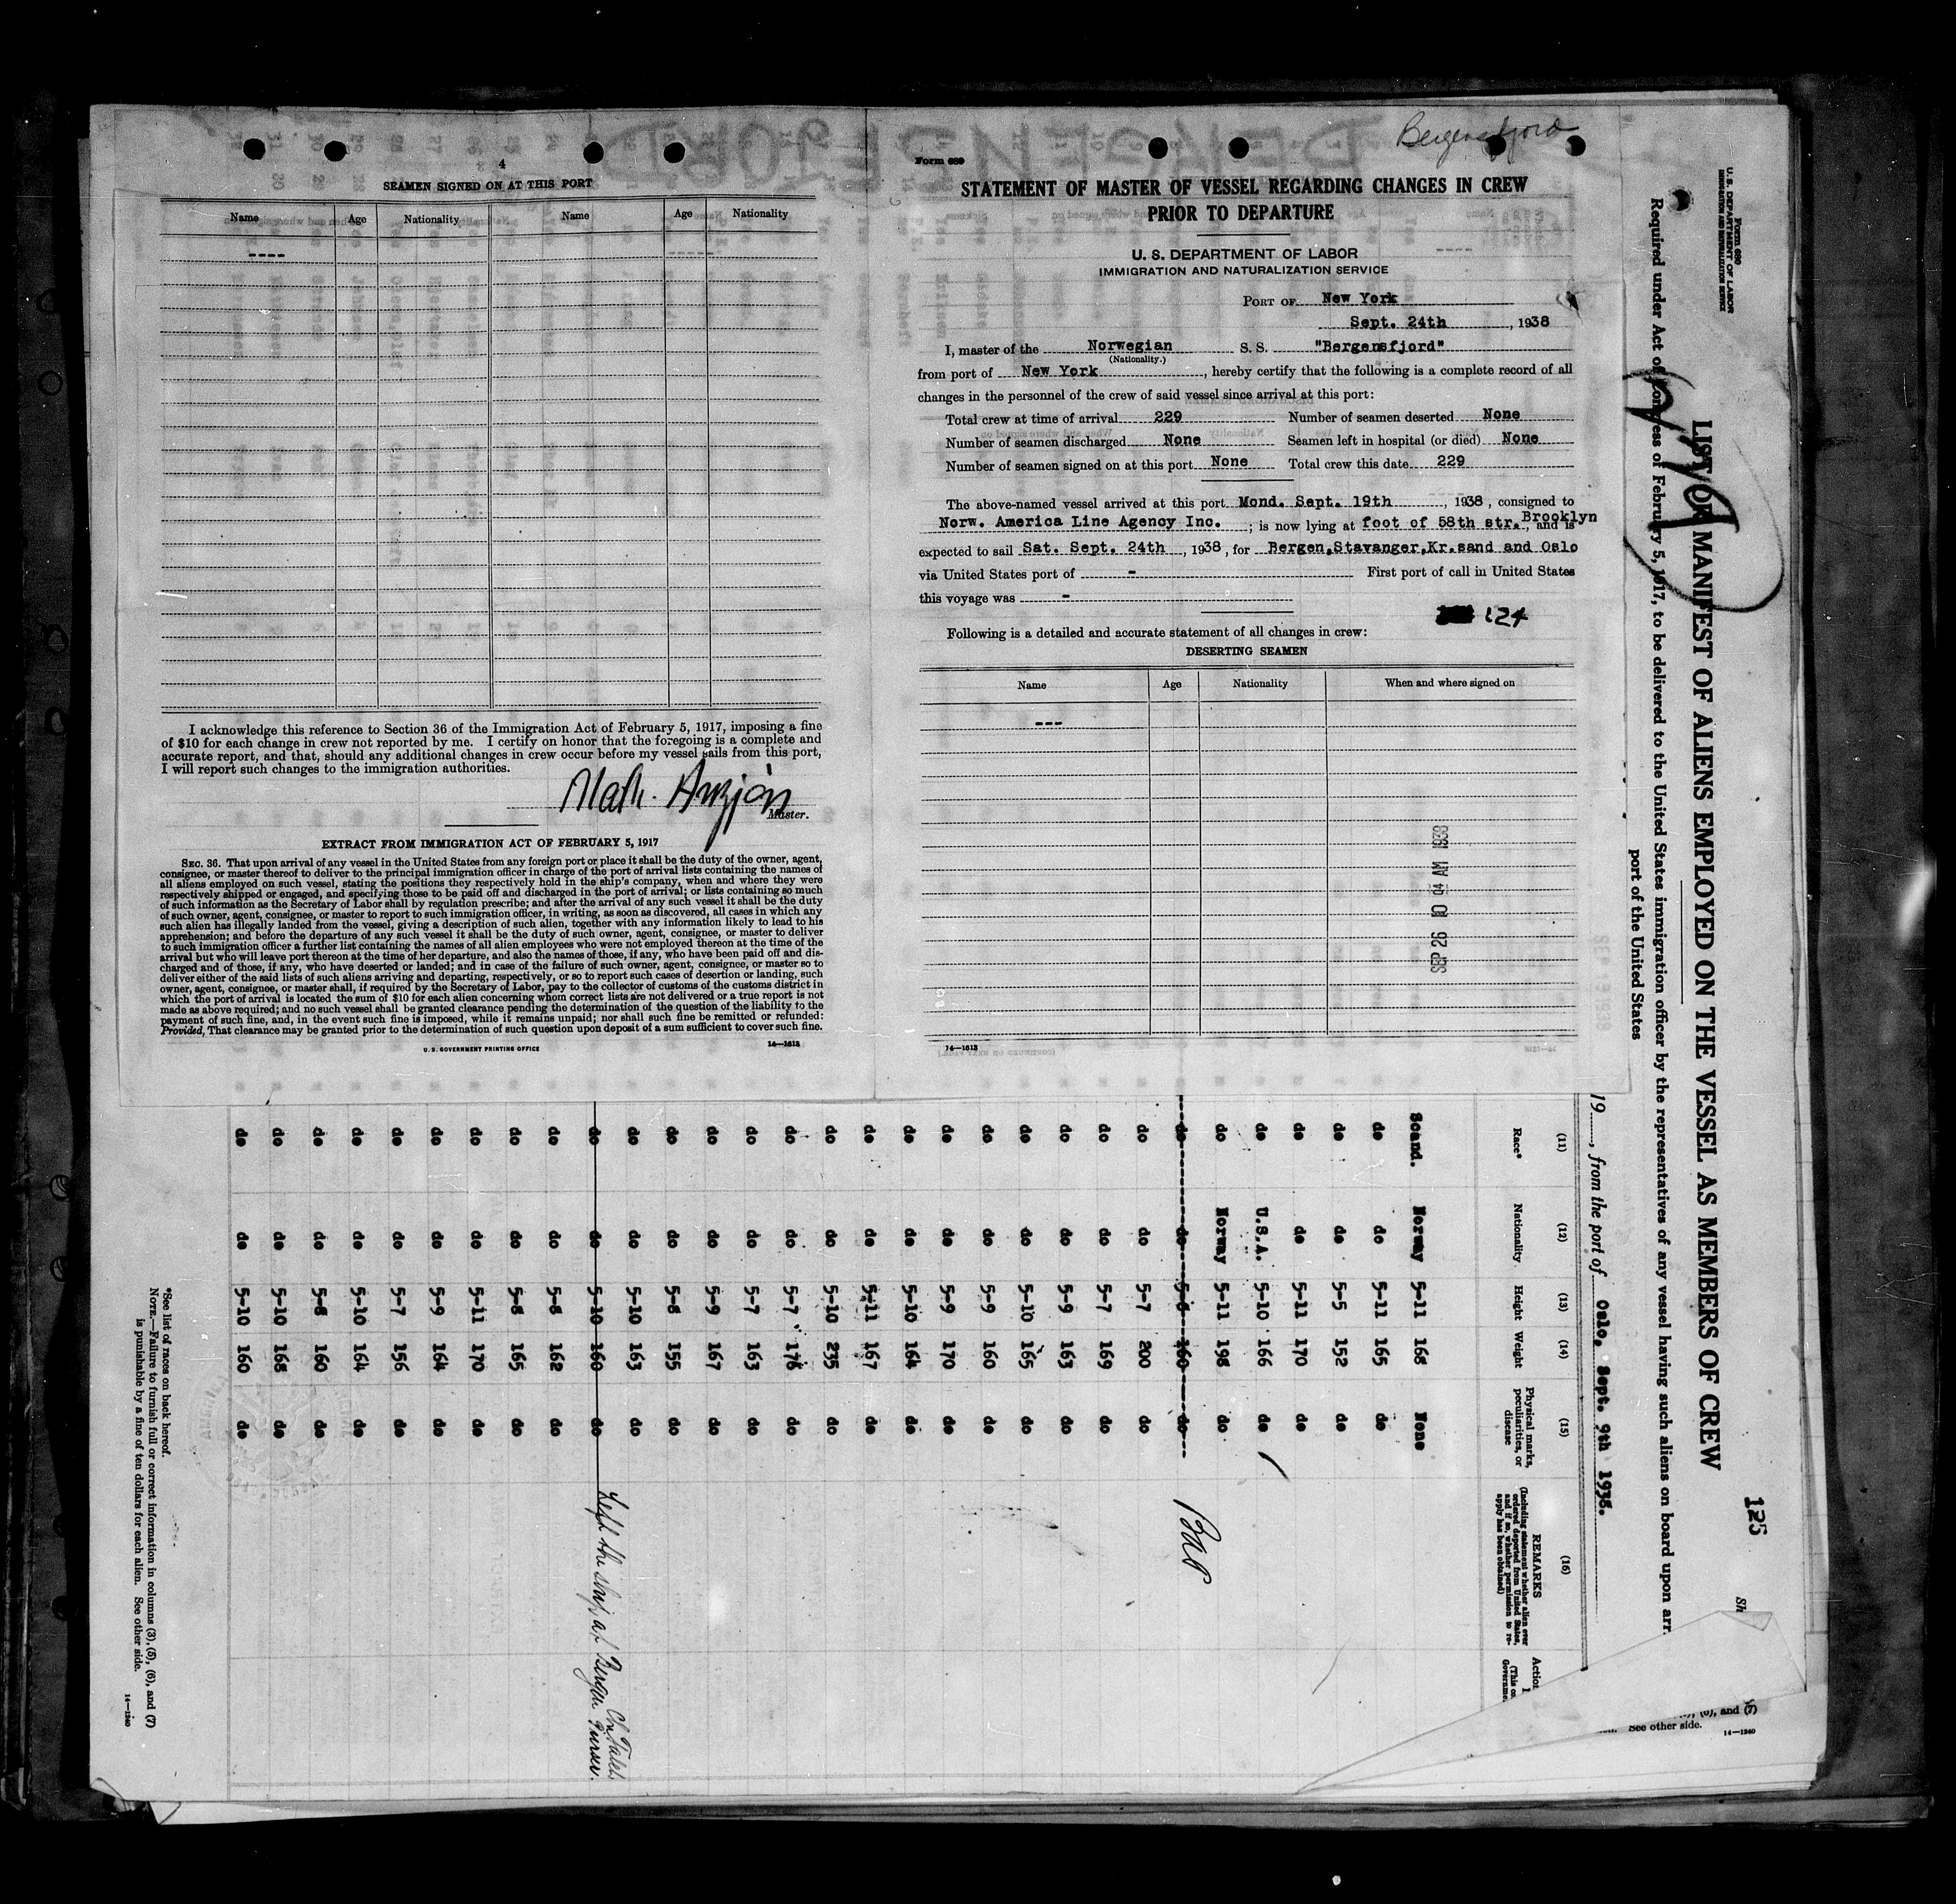 Bergensfjord
4
SEAMEN SIGNED ON AT THIS PORT
Name Age Nationality Name Age Nationality
----
I acknowledge this reference to Section 36 of the Immigration Act of February 5, 1917, imposing a fine
of $10 for each change in crew not reported by me. I certify on honor that the foregoing is a complete and
accurate report, and that, should any additional changes in crew occur before my vessel sails from this port,
I will report such changes to the immigration authorities.
Master.
EXTRACT FROM IMMIGRATION ACT OF FEBRUARY 5, 1917
SEC. 36. That upon arrival of any vessel in the United States from any foreign port or place it shall be the duty of the owner, agent,
consignee, or master thereof to deliver to the principal immigration officer in charge of the port of arrival lists containing the names of
all aliens employed on such vessel, stating the positions they respectively hold in the ship's company, when and where they were
respectively shipped or engaged, and specifying those to be paid off and discharged in the port of arrival; or lists containing so much
of such information as the Secretary of Labor shall by regulation prescribe; and after the arrival of any such vessel it shall be the duty
of such owner, agent, consignee, or master to report to such immigration officer, in writing, as soon as discovered, all cases in which any
such alien has illegally landed from the vessel, giving a description of such alien, together with any information likely to lead to his
apprehension; and before the departure of any such vessel it shall be the duty of such owner, agent, consignee, or master to deliver
to such immigration officer a further list containing the names of all alien employees who were not employed thereon at the time of the
arrival but who will leave port thereon at the time of her departure, and also the names of those, if any, who have been paid off and dis-
charged and of those, if any, who have deserted or landed; and in case of the failure of such owner, agent, consignee, or master so to
deliver either of the said lists of such aliens arriving and departing, respectively, or so to report such cases of desertion or landing, such
owner, agent, consignee, or master shall, if required by the Secretary of Labor, pay to the collector of customs of the customs district in
which the port of arrival is located the sum of $10 for each alien concerning whom correct lists are not delivered or a true report is not
made as above required; and no such vessel shall be granted clearance pending the determination of the question of the liability to the
payment of such fine, and, in the event such fine is imposed, while it remains unpaid; nor shall such fine be remitted or refunded:
Provided, That clearance may be granted prior to the determination of such question upon deposit of a sum sufficient to cover such fine.
U. S. GOVERNMENT PRINTING OFFICE 14—1613
Form 689
STATEMENT OF MASTER OF VESSEL REGARDING CHANGES IN CREW
PRIOR TO DEPARTURE
U. S. DEPARTMENT OF LABOR
IMMIGRATION AND NATURALIZATION SERVICE
PORT OF New York
Sept. 24th, 1938
I, master of the Norwegian S. S. "Bergensfjord"
(Nationality.)
from port of New York, hereby certify that the following is a complete record of all
changes in the personnel of the crew of said vessel since arrival at this port:
Total crew at time of arrival 229 Number of seamen deserted None
Number of seamen discharged None Seamen left in hospital (or died) None
Number of seamen signed on at this port None Total crew this date 229
The above-named vessel arrived at this port Mond. Sept. 19th, 1938, consigned to
Norw. America Line Agency Inc.; is now lying at foot of 58th str. Brooklyn, and is
expected to sail Sat. Sept. 24th, 1938, for Bergen,Stavanger,Kr.sand and Oslo
via United States port of - First port of call in United States
this voyage was -
124
Following is a detailed and accurate statement of all changes in crew:
DESERTING SEAMEN
Name Age Nationality When and where signed on
---
SEP 26 10 04 AM 1938
14—1613
Form 680
U. S. DEPARTMENT OF LABOR
IMMIGRATION AND NATURALIZATION SERVICE
125
Sh
LIST OR MANIFEST OF ALIENS EMPLOYED ON THE VESSEL AS MEMBERS OF CREW
Required under Act of Congress of February 5, 1917, to be delivered to the United States immigration officer by the representatives of any vessel having such aliens on board upon arr
port of the United States
19 , from the port of Oslo, Sept. 9th 1938.
(11) (12) (13) (14) (15) (16)
Race* Nationality Height Weight Physical marks, peculiarities, or disease REMARKS
(Including statement whether alien ever ordered deported from United States, and if so, whether permission to reapply has been obtained)
Scand. Norway 5-11 168 None
do do 5-11 165 do
do do 5-5 152 do
do do 5-11 170 do
do U.S.A. 5-10 166 do
do Norway 5-11 198 do
do do 5-8 160 do
do do 5-7 200 do
do do 5-7 169 do
do do 5-9 163 do
do do 5-10 165 do
do do 5-9 160 do
do do 5-9 170 do
do do 5-10 164 do
do do 5-11 167 do
do do 5-10 235 do
do do 5-7 178 do
do do 5-7 163 do
do do 5-9 167 do
do do 5-8 155 do
do do 5-10 163 do
do do 5-10 160 do Left the ship at Bergen
Purser.
do do 5-8 162 do
do do 5-8 165 do
do do 5-11 170 do
do do 5-9 164 do
do do 5-7 156 do
do do 5-10 164 do
do do 5-8 160 do
do do 5-10 168 do
do do 5-10 160 do
*See list of races on back hereof.
NOTE.—Failure to furnish full or correct information in columns (3), (5), (6), and (7)
is punishable by a fine of ten dollars for each alien. See other side.
14—1240
(6), and
See other side.
14—1240